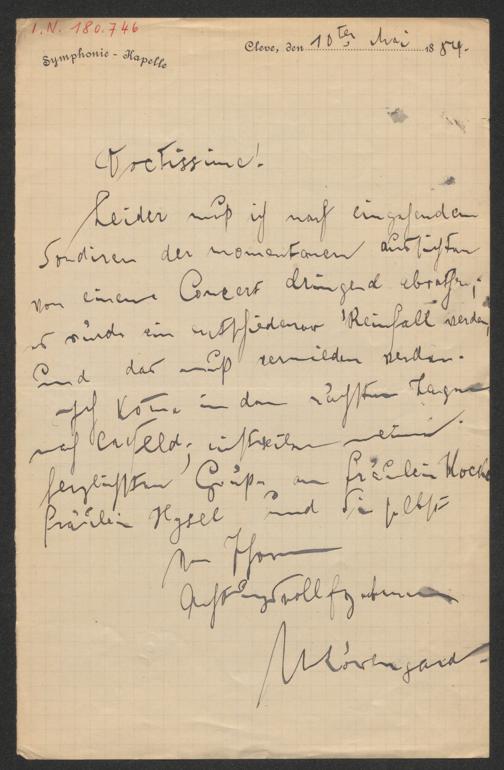 I.N. 180.746
Symphonie-Kapelle
Cleve, den 10ter Mai 1884.
Doctissime!
Leider muß ich nach eingehendem
Sondiren der momentanen Aussichten
von einem Concert dringend abrathen;
es würde ein entschiedener Reinfall werden,
und das muß vermieden werden.
Ich komme in den nächsten Tagen
nach Crefeld; inzwischen meine
herzlichsten Grüße an Fräulein Koch
Fräulein Hysel und Sie selbst
von Ihrem
Hochachtungsvoll ergebenen
M Löwengard